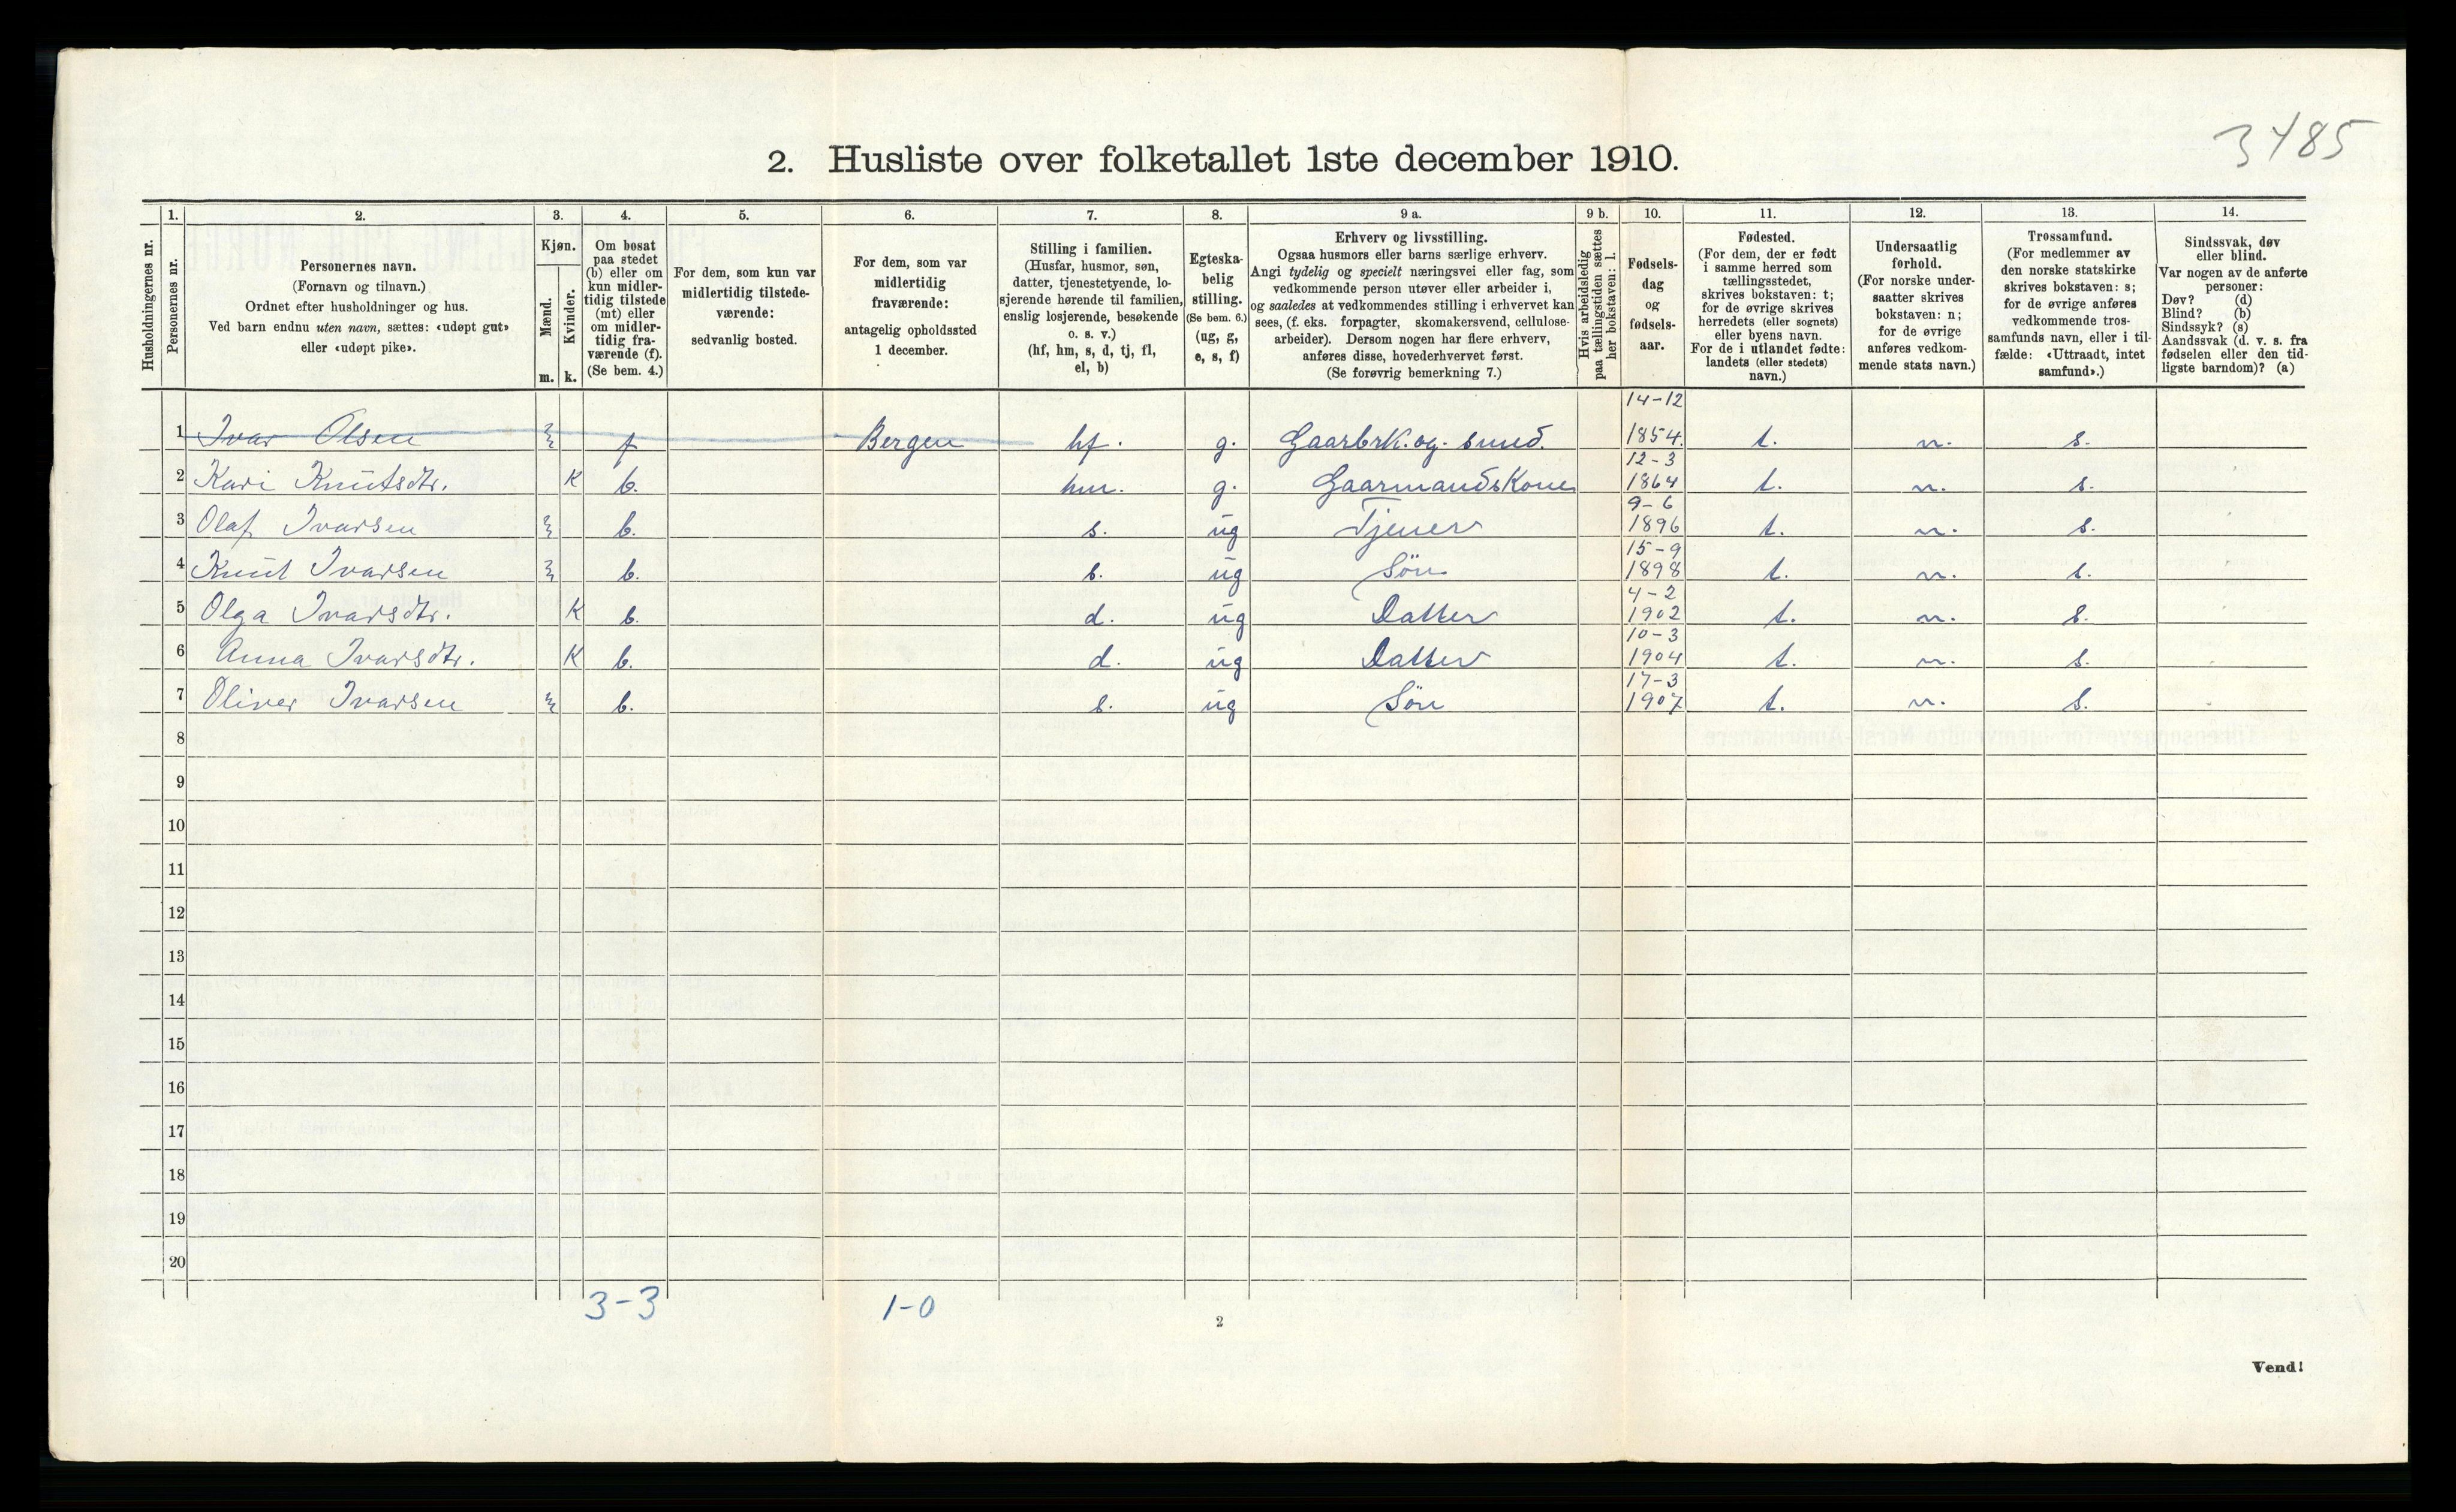 3485
2. Husliste over folketallet 1ste december 1910.
Husholdningernes nr.
1. 2. 3. 4. 5. 6. 7. 8. 9 a. 9 b. 10. 11. 12. 13. 14.
Personernes nr.
Personernes navn.
(Fornavn og tilnavn.)
Ordnet efter husholdninger og hus.
Ved barn endnu uten navn, sættes: «udøpt gut»
eller «udøpt pike».
Kjøn.
Mænd.
m.
Kvinder.
k.
Om bosat
paa stedet
(b) eller om
kun midler-
tidig tilstede
(mt) eller
om midler-
tidig fra-
værende (f).
(Se bem. 4.)
For dem, som kun var
midlertidig tilstede-
værende:
sedvanlig bosted.
For dem, som var
midlertidig
fraværende:
antagelig opholdssted
1 december.
Stilling i familien.
(Husfar, husmor, søn,
datter, tjenestetyende, lo-
sjerende hørende til familien,
enslig losjerende, besøkende
o. s. v.)
(hf, hm, s, d, tj, fl,
el, b)
Egteska-
belig
stilling.
(Se bem. 6.)
(ug, g,
e, s, f)
Erhverv og livsstilling.
Ogsaa husmors eller barns særlige erhverv.
Angi tydelig og specielt næringsvei eller fag, som
vedkommende person utøver eller arbeider i,
og saaledes at vedkommendes stilling i erhvervet kan
sees, (f. eks. forpagter, skomakersvend, cellulose-
arbeider). Dersom nogen har flere erhverv,
anføres disse, hovederhvervet først.
(Se forøvrig bemerkning 7.)
Hvis arbeidsledig
paa tællingstiden sættes
her bokstaven: l.
Fødsels-
dag
og
fødsels-
aar.
Fødested.
(For dem, der er født
i samme herred som
tællingsstedet,
skrives bokstaven: t;
for de øvrige skrives
herredets (eller sognets)
eller byens navn.
For de i utlandet fødte:
landets (eller stedets)
navn.)
Undersaatlig
forhold.
(For norske under-
saatter skrives
bokstaven: n;
for de øvrige
anføres vedkom-
mende stats navn.)
Trossamfund.
(For medlemmer av
den norske statskirke
skrives bokstaven: s;
for de øvrige anføres
vedkommende tros-
samfunds navn, eller i til-
fælde: «Uttraadt, intet
samfund».)
Sindssvak, døv
eller blind.
Var nogen av de anførte
personer:
Døv? (d)
Blind? (b)
Sindssyk? (s)
Aandssvak (d. v. s. fra
fødselen eller den tid-
ligste barndom)? (a)
1 Ivar Olsen m f Bergen hf. g. Gaarbrk. og. smed. 14-12 1854. t. n. s.
2 Kari Knutsdtr. K b. hm. g. Gaarmands Kone 12-3 1864 t. n. s.
3 Olaf Ivarsen m b. s. ug Tjener 9-6 1896 t. n. s.
4 Knut Ivarsen m b. s. ug Sön 15-9 1898 t. n. s.
5 Olga Ivarsdtr. K b. d. ug Datter 4-2 1902 t. n. s.
6 Anna Ivarsdtr. K b. d. ug Datter 10-3 1904 t. n. s.
7 Oliver Ivarsen m b. s. ug Sön 17-3 1907 t. n. s.
8
9
10
11
12
13
14
15
16
17
18
19
20
3-3 1-0
2
Vend!